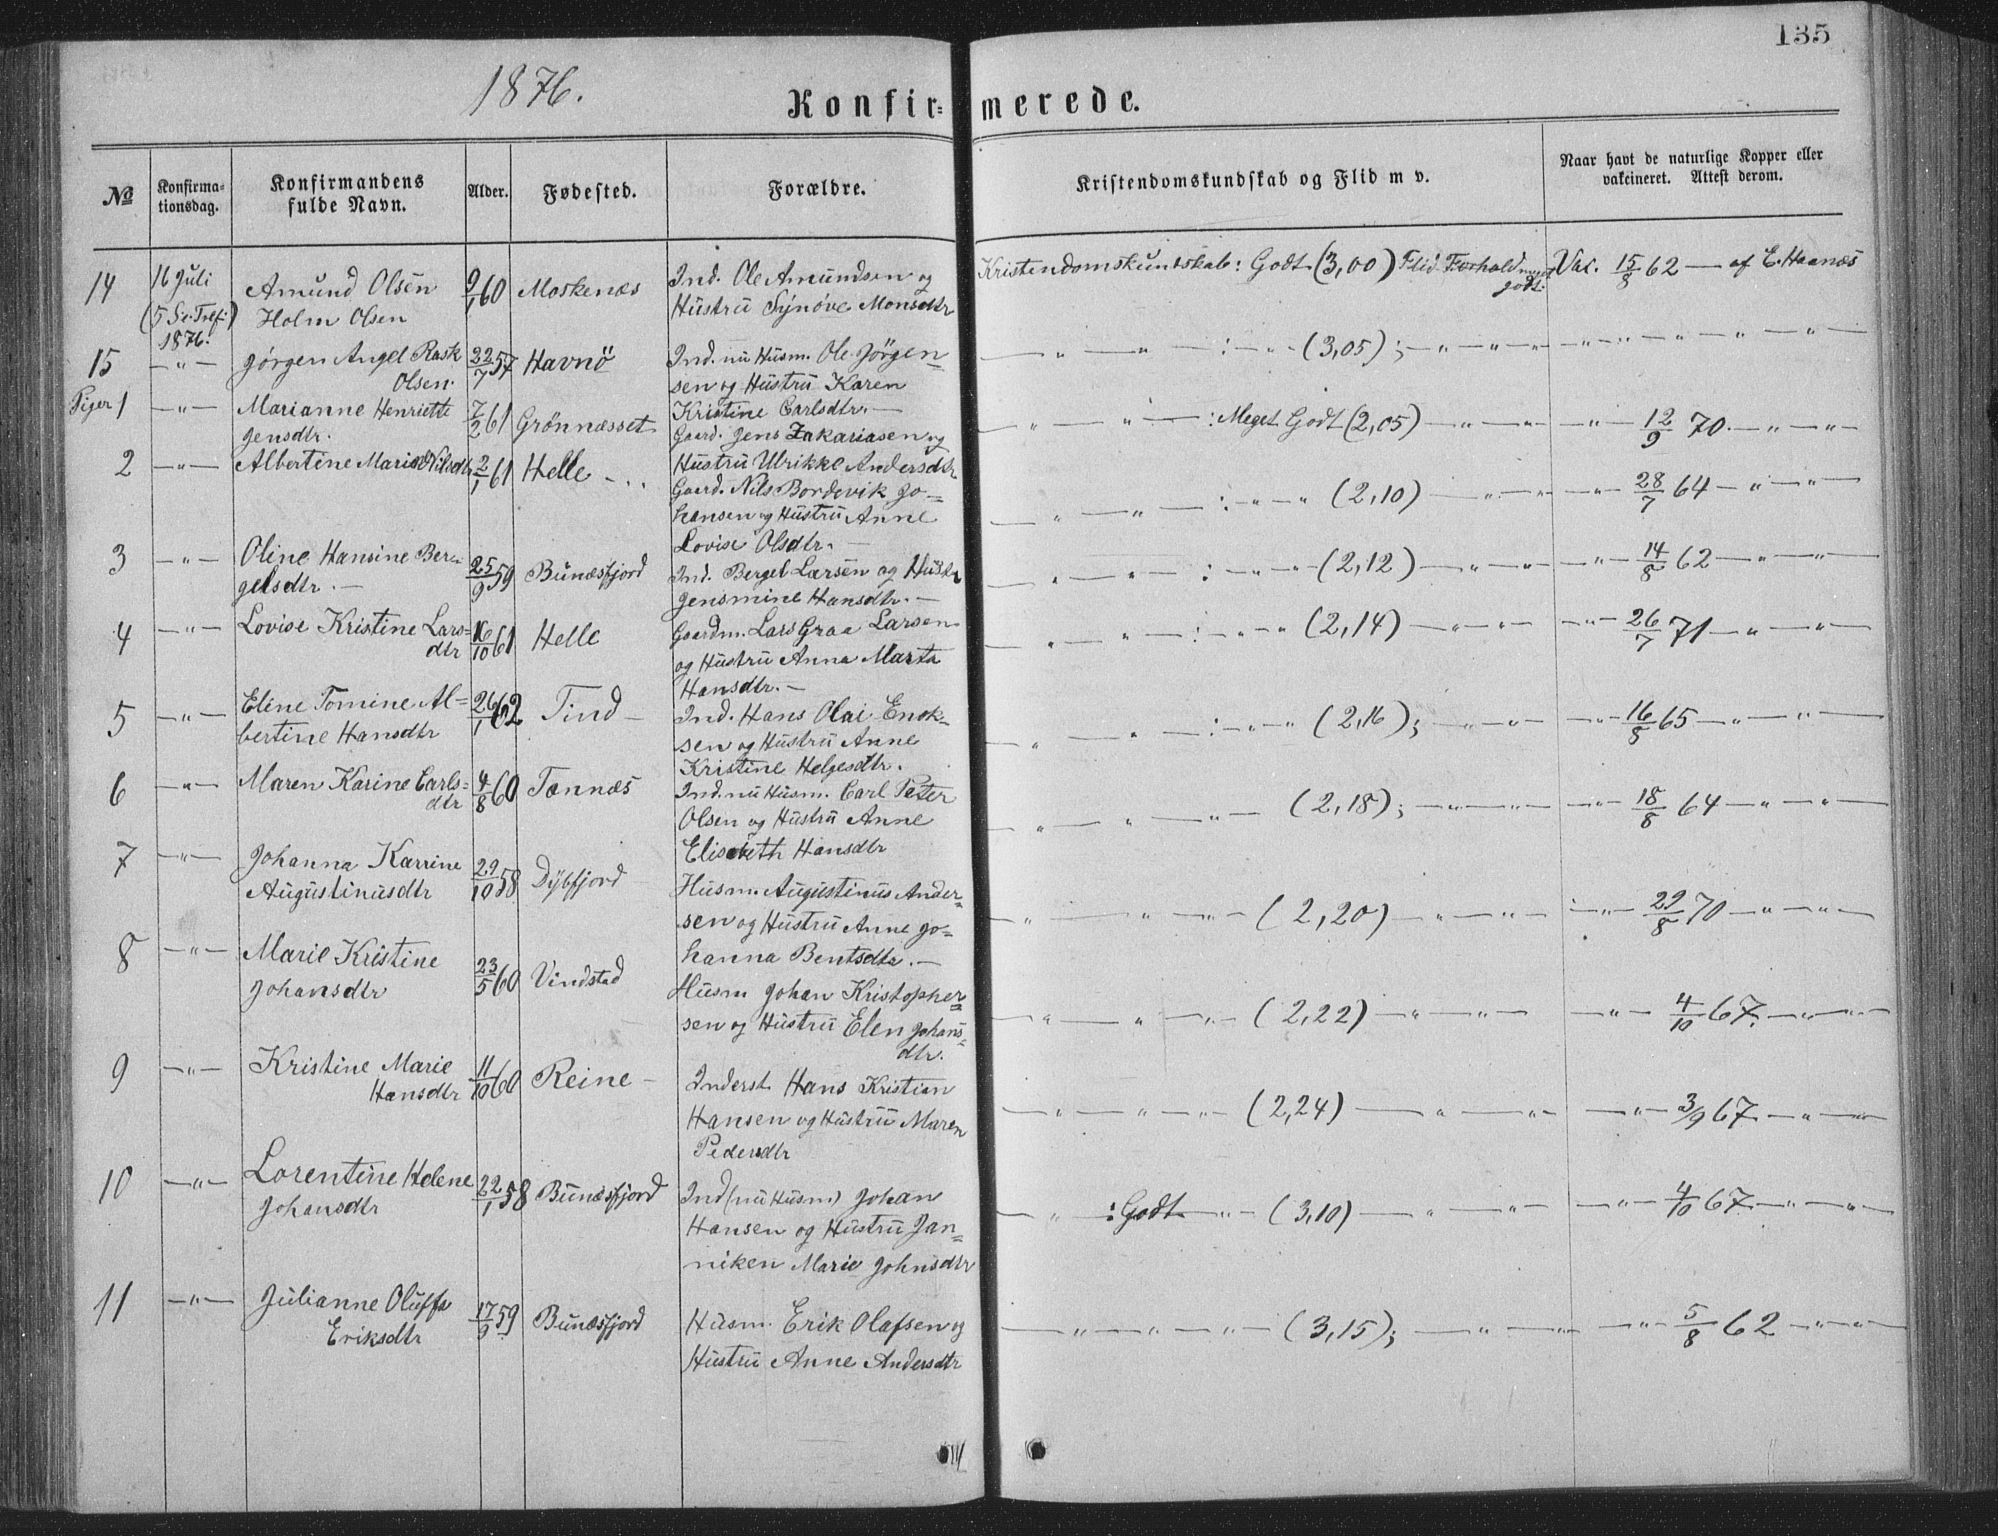 135
1876.
Konfir= merede.
No
Konfirma-
tionsdag.
Konfirmandens
fulde Navn.
Alder.
Fødested.
Forældre.
Kristendomskundskab og Flid m v.
Naar havt de naturlige Kopper eller
vakcineret. Attest derom.
14 16 Juli Amund Olsen 9/1 60 Moskenæs Ind. Ole Amundsen og Kristendomskundskab: Godt (3,00) Flid Forhold meget godt. Vac. 15/8 62 — af E. Haanes
(5 S. e. Tref.) Holm Olsen Hustru Synøve Monsdtr
1876.
15 —„— Jørgen Angel Rask 22/7 57 Havnö Ind. nu Husm. Ole Jørgen= —„—„—:—„— (3,05); —„—„—„— —„—„—„—„—
Olsen. sen og Hustru Karen
Kristine Carlsdtr. —
Piger 1 —„— Marianne Henriette 7/2 61 Grønnæsset Gaard. Jens Zakariasen og „ „—: Meget Godt (2,05) —„—„— —„— 12/9 70.—„—„—
Jensdtr. Hustru Ulrikke Andersdtr
2 —„— Albertine Marie Nilsdtr 2/1 61 Helle - .. Gaard. Nils Bordevik Jo= —„—„—:—„—„ (2,10) —„—„— —„— 28/7 64 —„—„—
hansen og Hustru Anne
Lovise Olsdtr. —
3 —„— Oline Hansine Ber- 25/9 59 Bunæsfjord Ind. Bergel Larsen og Hustr —„—„—:—„— (2,12) —„—„— —„— 14/8 62 —„—„—
gelsdtr. — Jensmine Hansdtr. —
4 —„— Lovise Kristine Lars= 16/10 61 Helle Gaardm. Lars Graa Larsen —„—„—:—„—„ (2,14) —„—„— —„— 26/7 71 —„—„—
dtr og Hustru Anna Marta
Hansdtr. —
5 —„— Eline Tomine Al= 26/1 62 Tind — Ind. Hans Olai Enok- —„—„—:—„—„ (2,16); —„—„— —„— 16/8 65 —„—„—
bertine Hansdtr sen og Hustru Anne
Kristine Helgesdtr.
6 —„— Maren Karine Carls= 4/8 60 Tennæs Ind. nu Husm. Carl Peter —„—„—„— (2,18); —„—„— —„— 18/8 64 —„—„—
dtr Olsen og Hustru Anne
Elisabeth Hansdtr
7 —„— Johanna Karrine 29/10 58 Dybfjord Husm. Augustinus Ander= —„—„—„— (2,20) —„—„— —„— 29/8 70 —„—„—
Augustinusdtr sen og Hustru Anne Jo=
hanna Bentsdtr. —
8 —„— Marie Kristine 23/5 60 Vindstad Husm Johan Kristopher= —„—„—„— (2,22) —„—„— —„— 4/10 67. —„—„—
Johansdtr sen og Hustru Elen Johans=
dtr.
9 —„— Kristine Marie 11/10 60 Reine — Inderst. Hans Kristian —„—„—„— (2,24) —„—„— —„— 3/9 67. —„—„—
Hansdtr Hansen og Hustru Maren
Pedersdtr
10 —„— Lorentine Helene 22/1 58 Bunæsfjord Ind (nu Husm) Johan —„ : Godt —„— (3,10) —„—„— —„— 4/10 67. —„—„—
Johansdtr Hansen og Hustru Jan=
niken Marie Johnsdtr
11 —„— Julianne Oluffa 17/9 59 Bunæsfjord Husm. Erik Olafsen og —„—„—„—„— (3,15); —„—„— —„— 5/8 62 —„—„—
Eriksdtr Hustru Anne Andersdtr